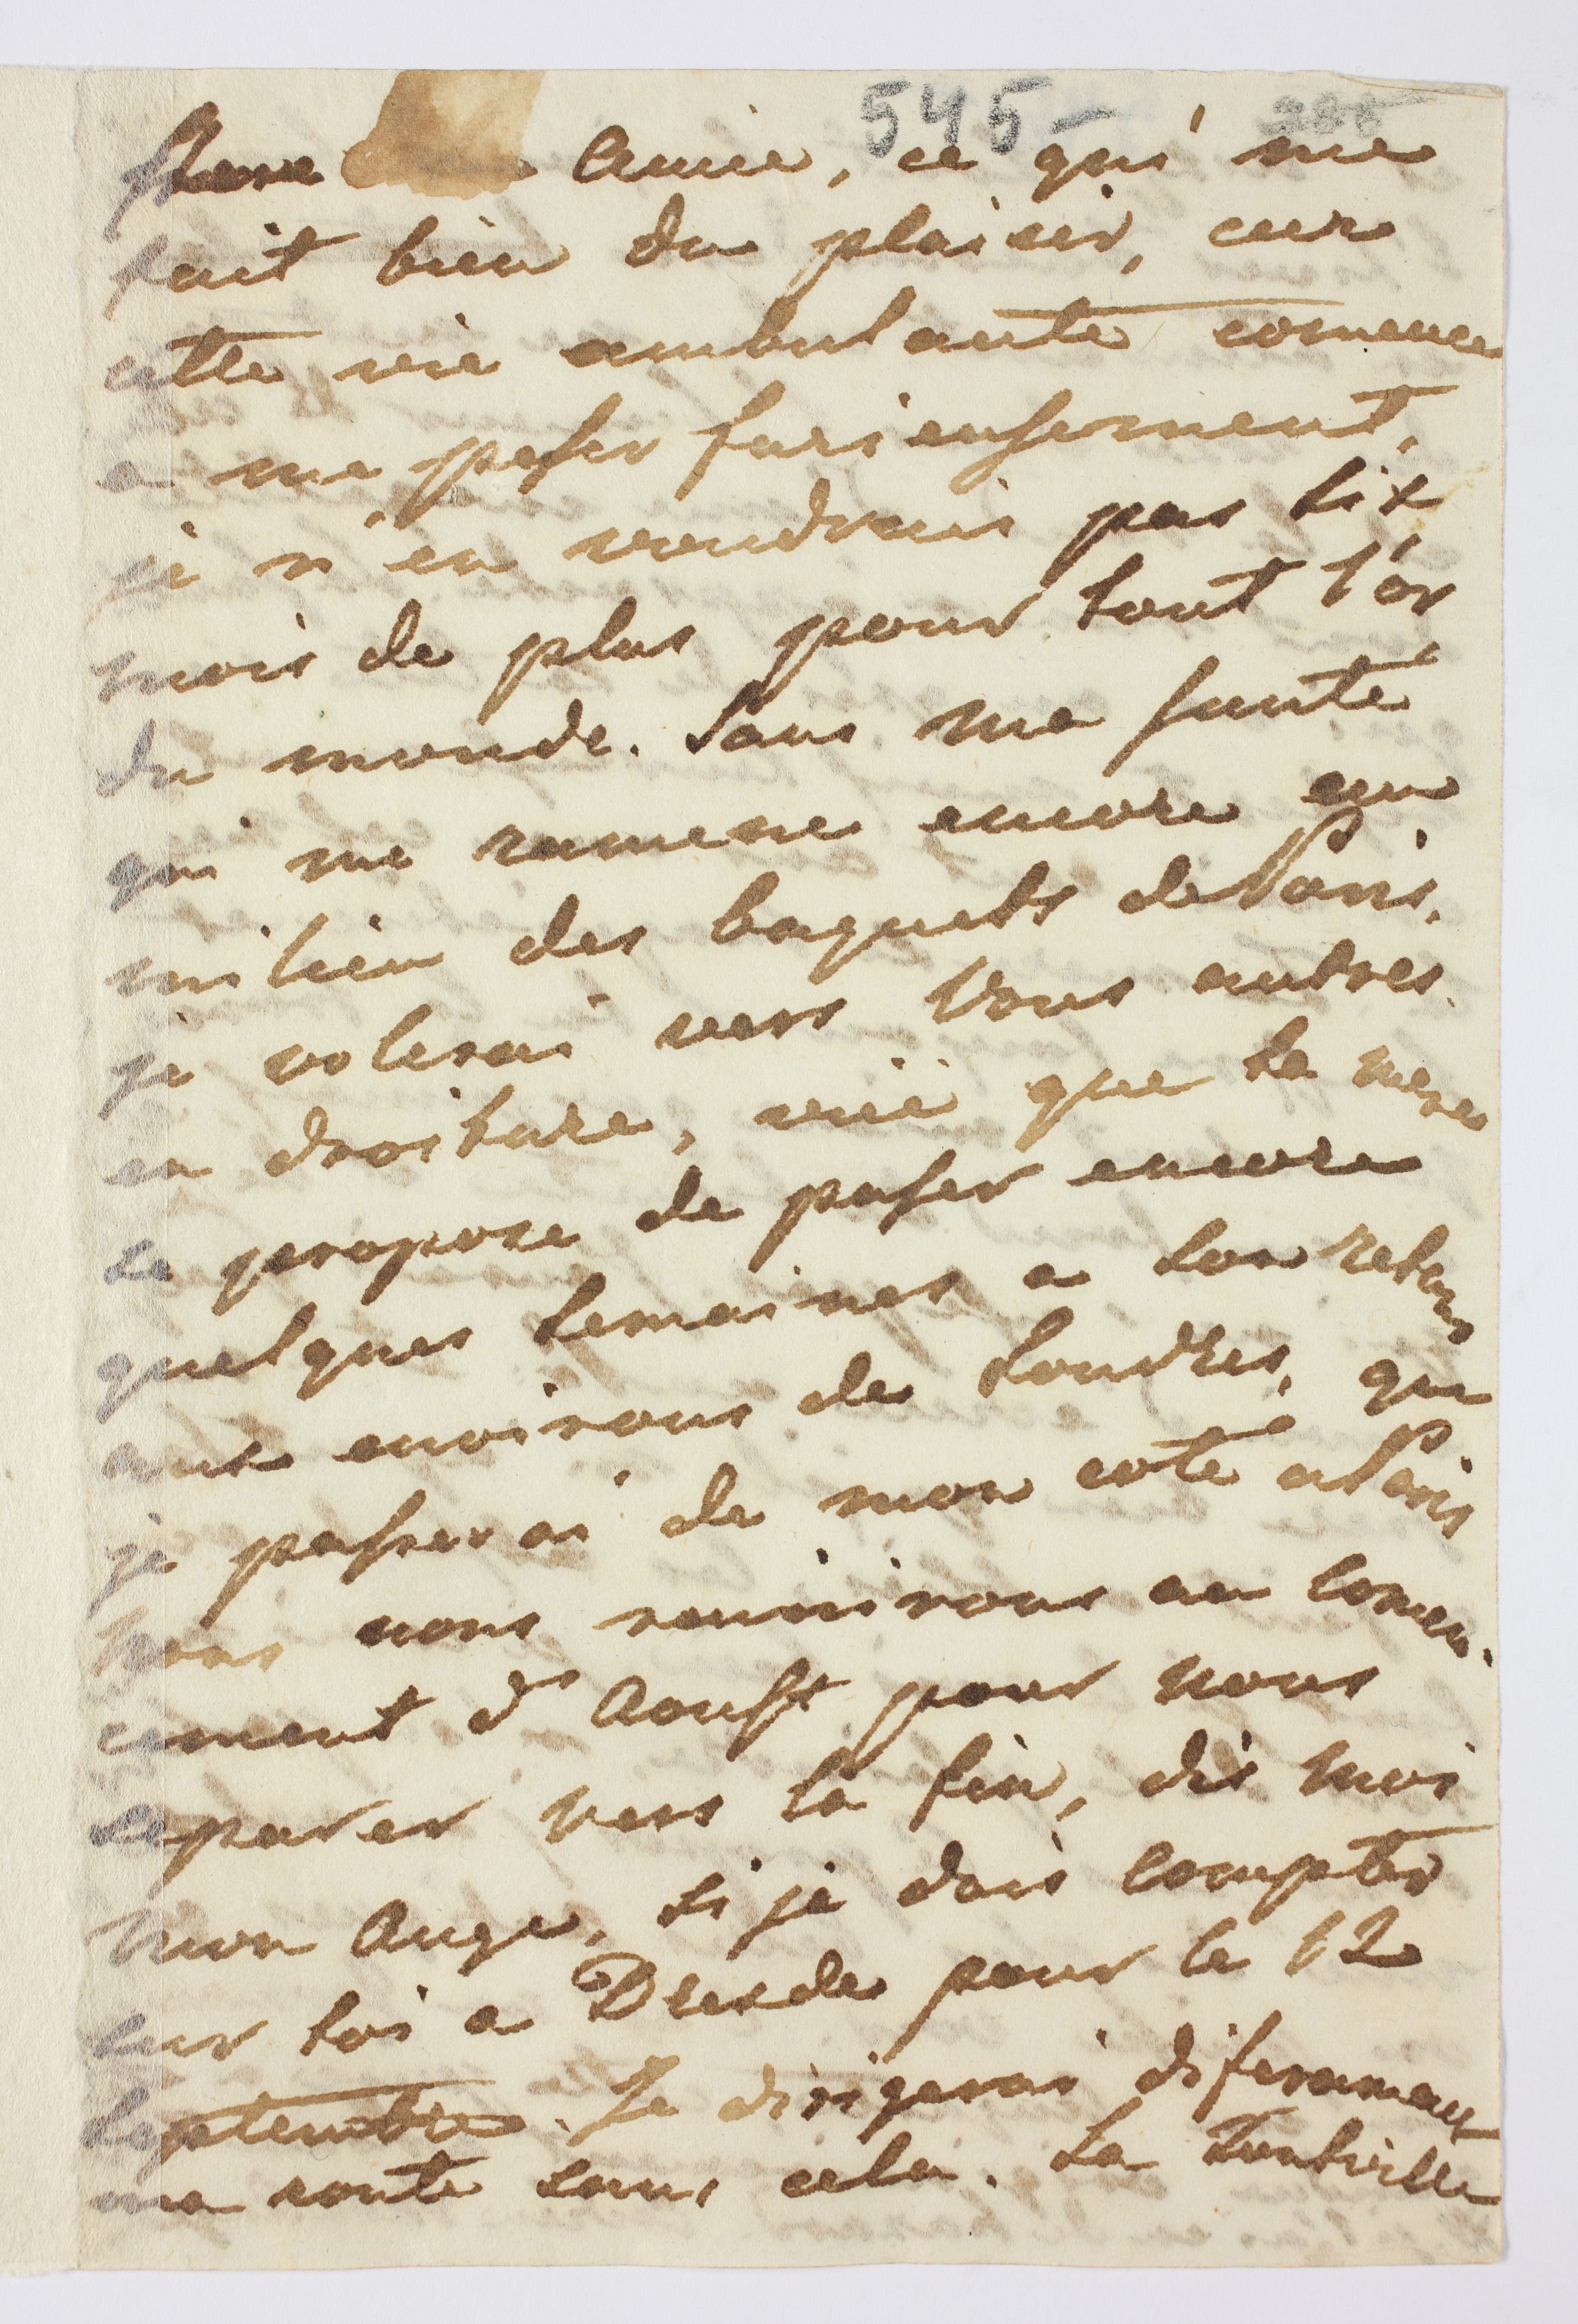 545-
chere Amie, ce qui me
fait bien du plaisir, car
cette vie ambulante comence
a me peser furieusement,
je n'en voudrais pas six
mois de plus pour tout l'or
du monde. Sans ma sante
qui me ramene encore au
milieu des baquets de Paris,
je volerai vers Vous autres
en droiture, vüe que la mere
se propose de passer encore
quelques semaines a son retour
aux environs de Londres, que
je passerai de mon coté a Paris
nous nous reunirons au comen-
cement d'Aoust pour nous
separer vers la fin, dis moi
mon Ange, si je dois compter
sur toi a Dresde pour le 12
Septembre. Je dirigerai diferament
ma route sans cela. La